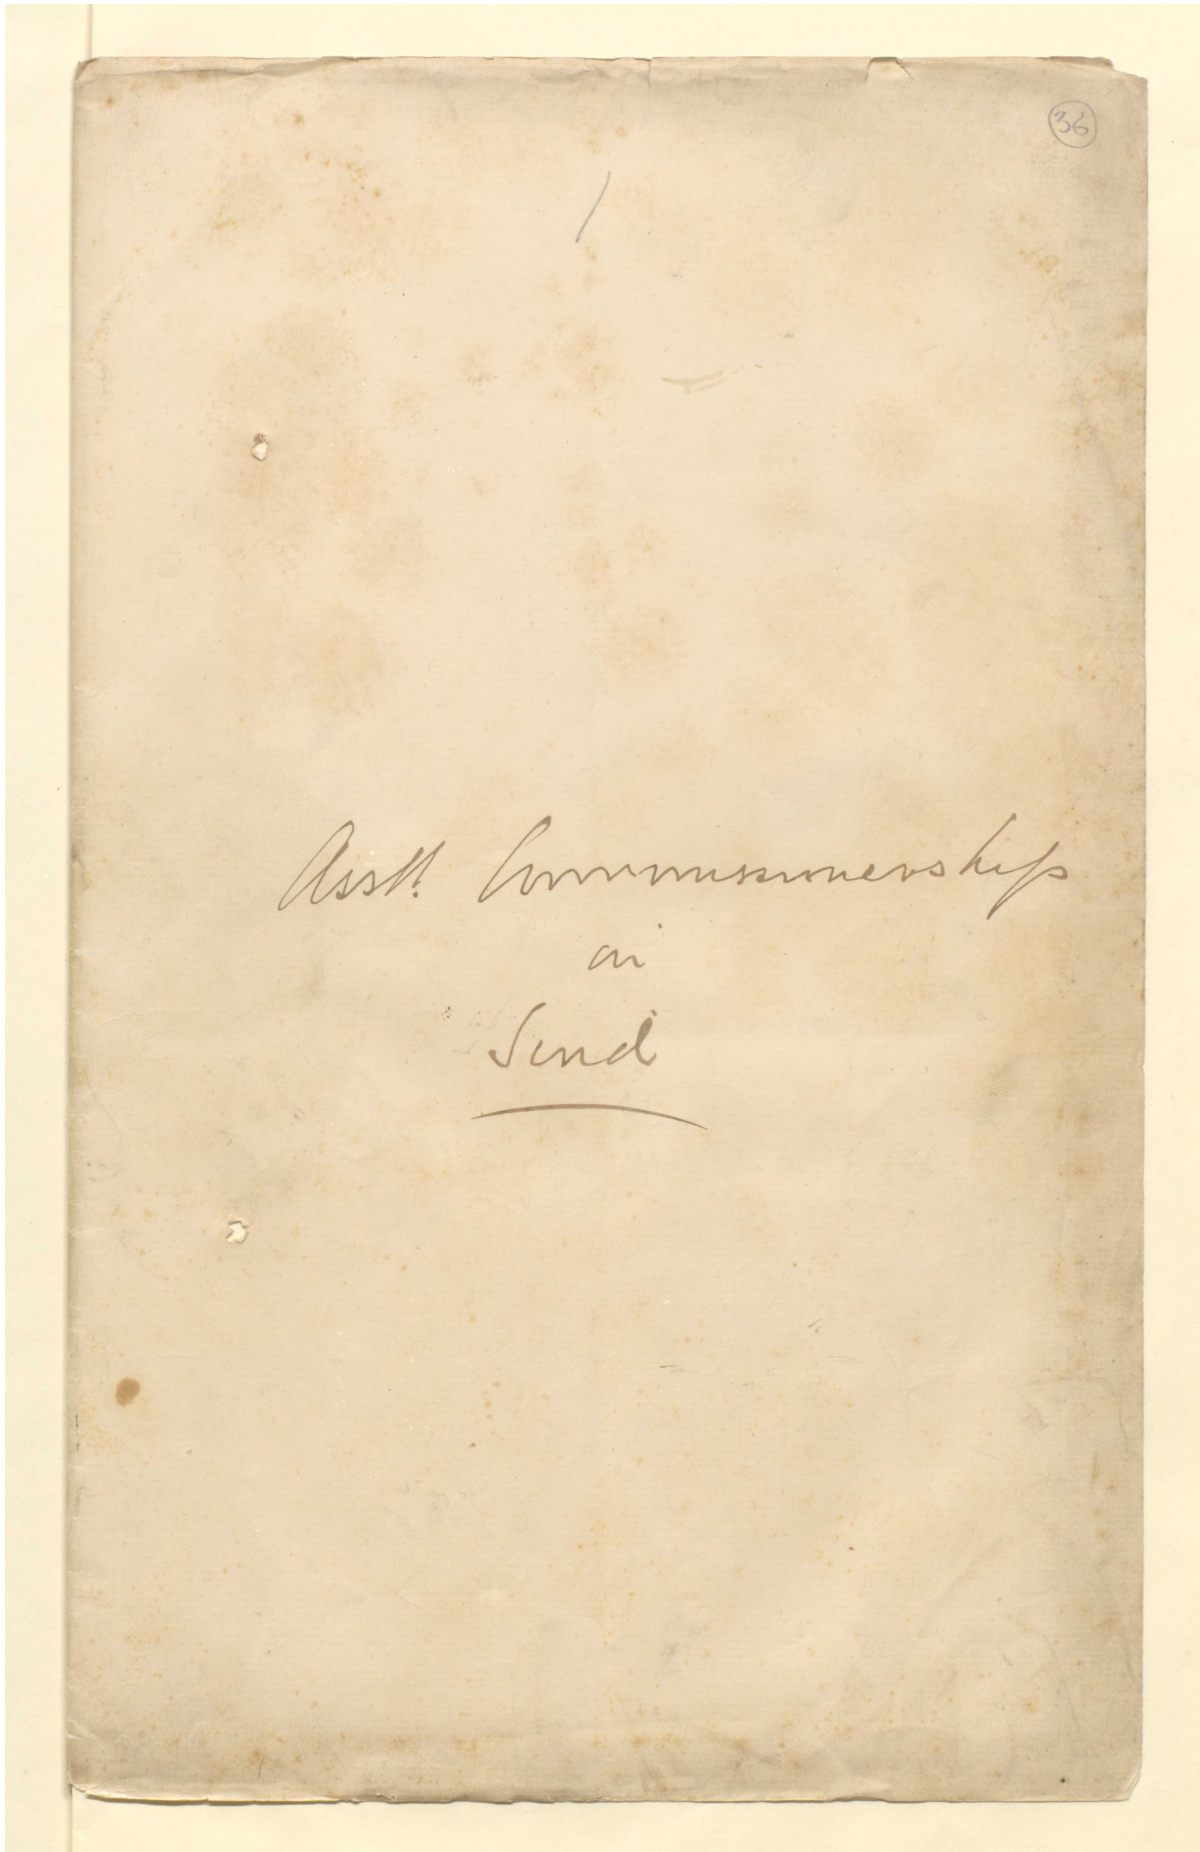 36
/
Asstt. Commissionership
in
Sind